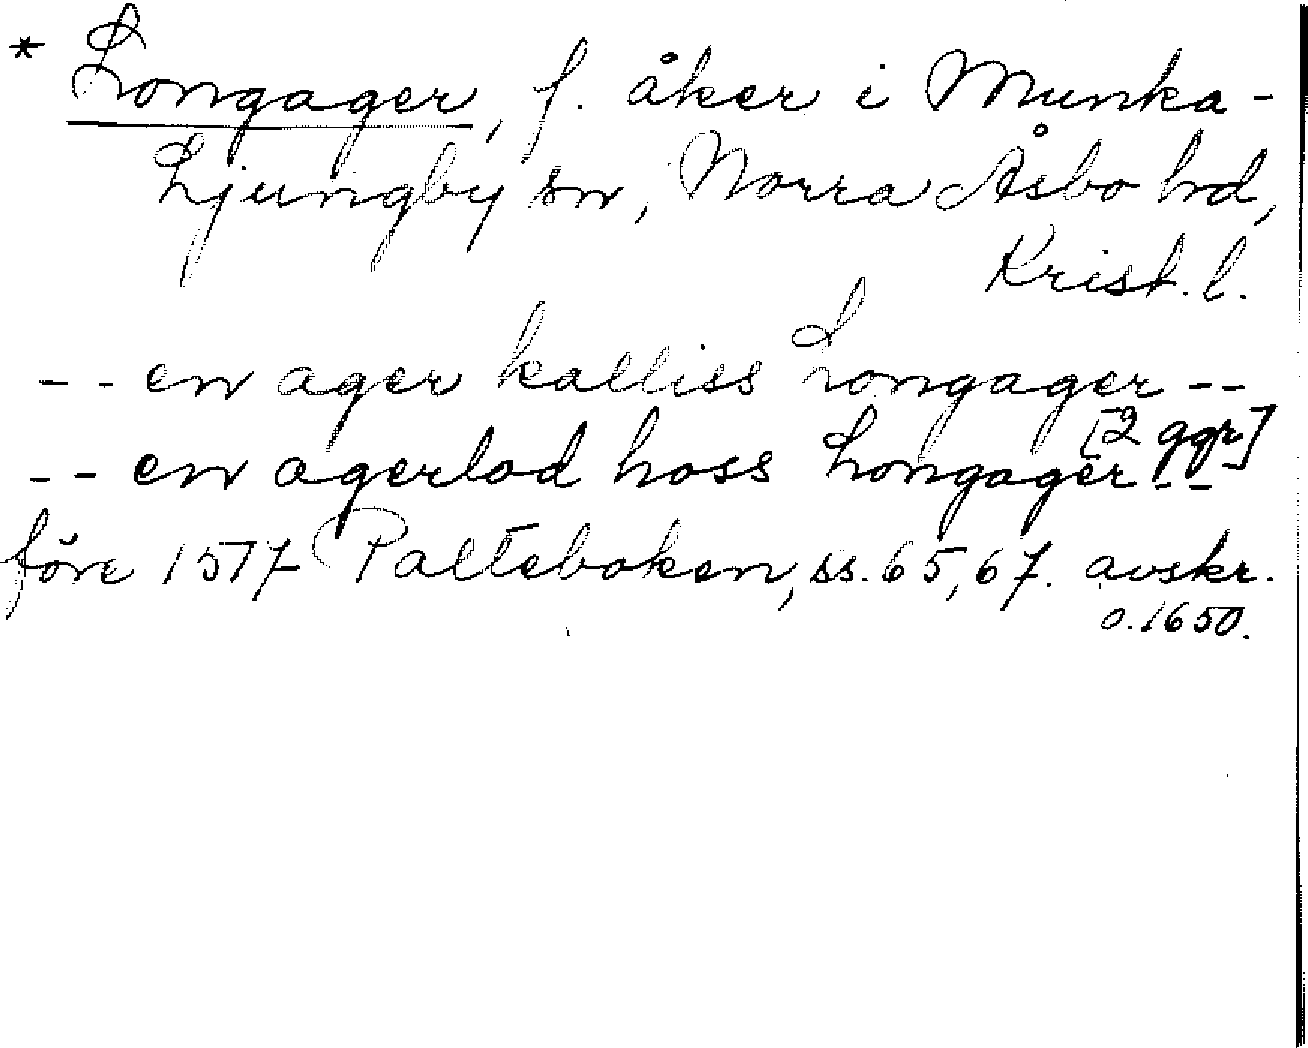 * Longager, f. åker i Munka-
Ljungby sn, Norra Åsbo hd,
Krist. l.
-- en ager kalliss Longager --
[2 ggr]
-- en agerlod hoss Longager --
före 1577 Palteboken, ss. 65, 67. avskr.
o. 1650.